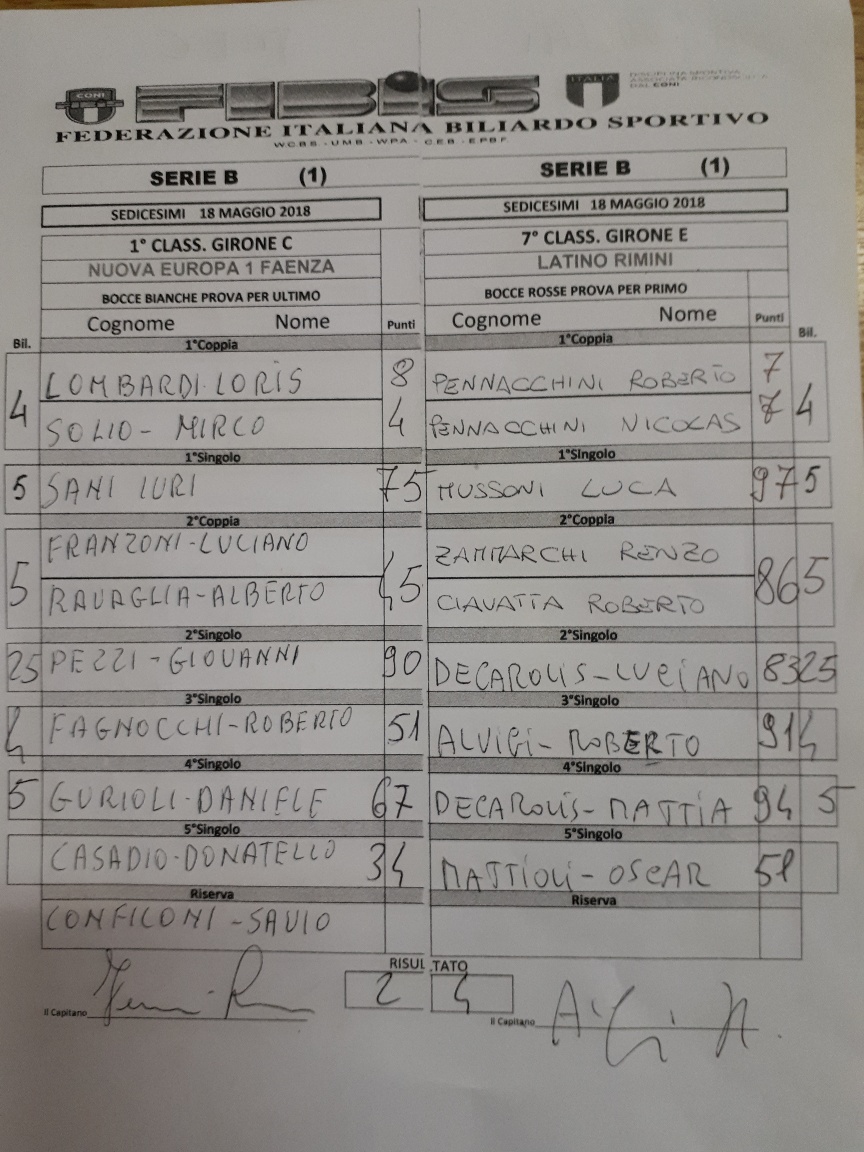 CONI FIBIS ITALIA DISCIPLINA SPORTIVA ASSOCIATA DAL CONI
FEDERAZIONE ITALIANA BILIARDO SPORTIVO
W.C.B.S - U.M.B - W.P.A - C.E.B - E.P.B.F.
SERIE B (1) SERIE B (1)
SEDICESIMI 18 MAGGIO 2018 SEDICESIMI 18 MAGGIO 2018
1° CLASS. GIRONE C 7° CLASS. GIRONE E
NUOVA EUROPA 1 FAENZA LATINO RIMINI
BOCCE BIANCHE PROVA PER ULTIMO BOCCE ROSSE PROVA PER PRIMO
Cognome Nome Punti Cognome Nome Punti
Bil. 1°Coppia 1°Coppia Bil.
4 LOMBARDI LORIS 8 PENNACCHINI ROBERTO 7 4
SOLIO - MIRCO 4 PENNACCHINI NICOLAS 7
1°Singolo 1°Singolo
5 SANI IURI 75 MUSSONI LUCA 97 5
2°Coppia 2°Coppia
5 FRANZONI-LUCIANO 45 ZAMMARCHI RENZO 86 5
RAVAGLIA-ALBERTO CIAVATTA ROBERTO
2°Singolo 2°Singolo
25 PEZZI-GIOVANNI 90 DECAROLIS-LUCIANO 83 25
3°Singolo 3°Singolo
4 FAGNOCCHI-ROBERTO 51 ALVIGI-ROBERTO 91 4
4°Singolo 4°Singolo
5 GURIOLI-DANIELE 67 DECAROLIS-MATTIA 94 5
5°Singolo 5°Singolo
CASADIO-DONATELLO 34 MATTIOLI-OSCAR 51
Riserva Riserva
CONFICONI-SAVIO
RISULTATO
2 4
Il Capitano Il Capitano